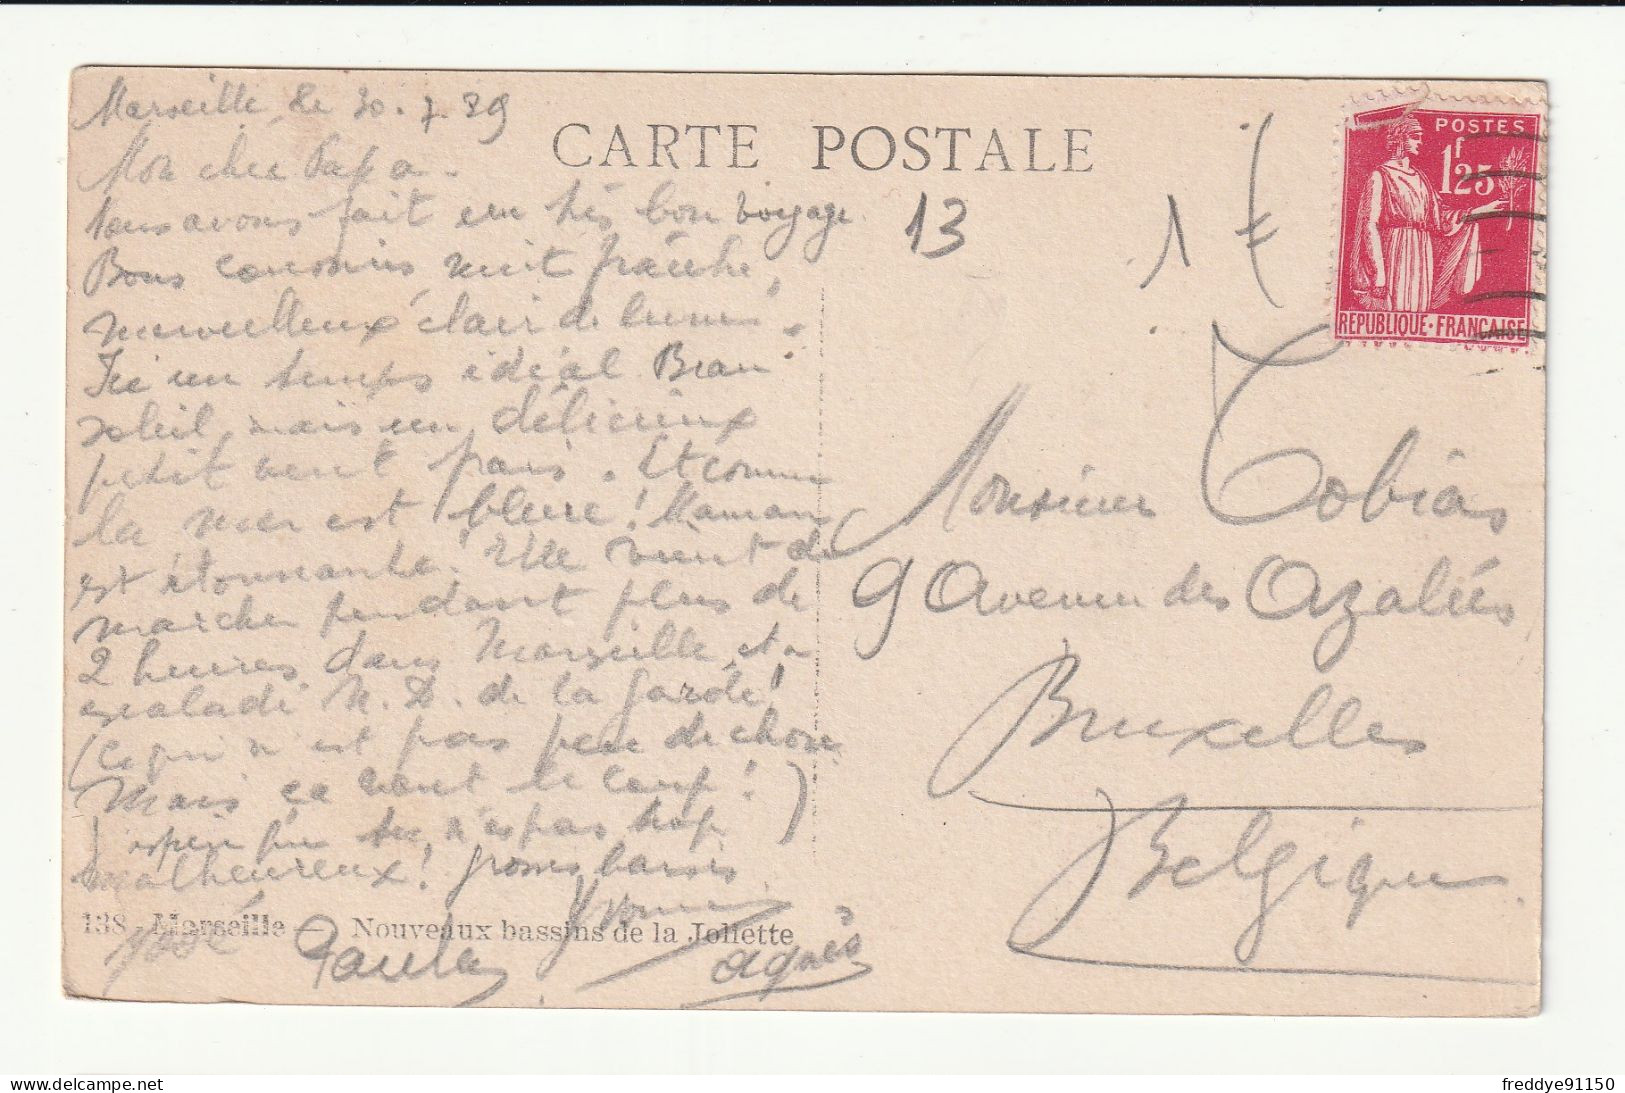 Marseille, le 30.7.39
Mon cher Papa.
Nous avons fait un très bon voyage.
Bons coussins nuit fraîche,
merveilleux clair de lune.
Ici un temps idéal Beau
soleil, mais un délicieux
petit vent frais. Et comme
la mer est bleue! Maman
est étonnante. Elle vient de
marcher pendant plus de
2 heures dans Marseille, et a
escaladé N. D. de la Garde!
(Ce qui n'est pas peu de chose
Mais ça vaut le coup!)
J'espère que tu n'es pas trop
malheureux! grosses baises
Yvonne
José Paula Agnès
138 - Marseille - Nouveaux bassins de la Joliette
CARTE POSTALE
13
1 €
POSTES
1f25
REPUBLIQUE·FRANÇAISE
Monsieur Tobias
9 Avenue des Azalées
Bruxelles
Belgique
freddye91150